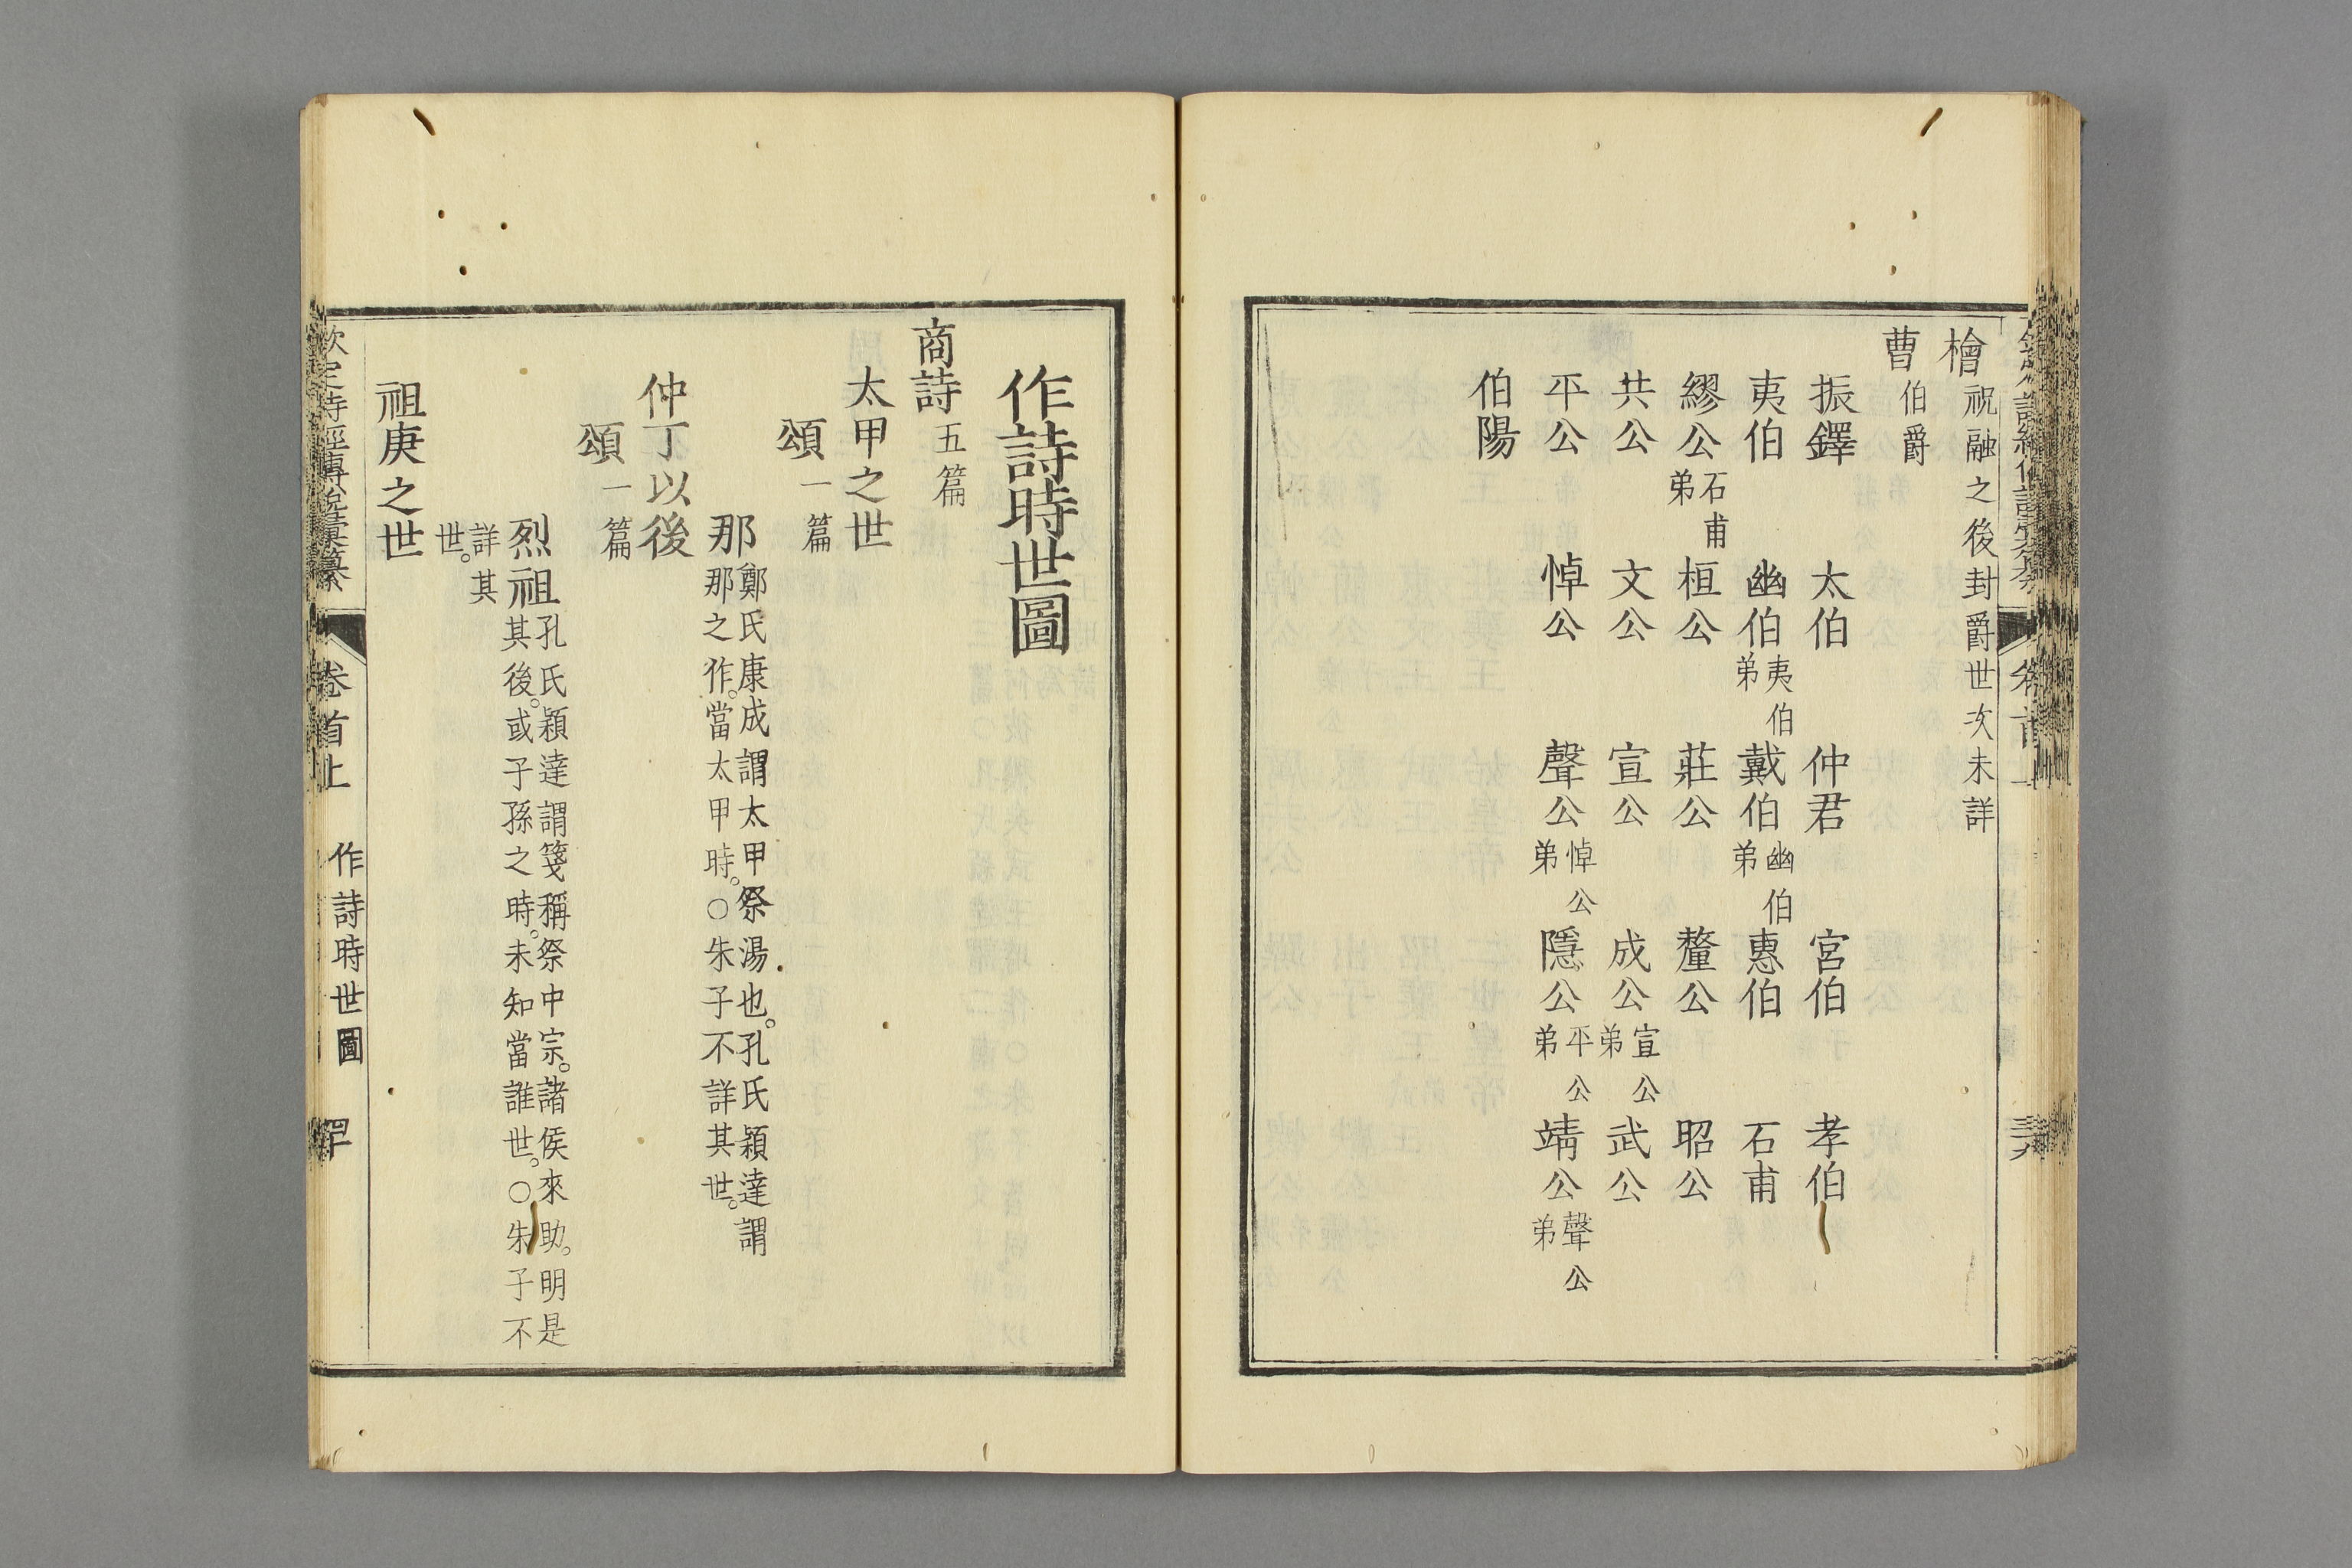 檜祝融之後封爵世次未詳
曹伯爵
振鐸 太伯 仲君 宮伯 孝伯
夷伯 幽伯夷伯弟 戴伯幽伯弟 惠伯 石甫
繆公石甫弟 桓公 莊公 釐公 昭公
共公 文公 宣公 成公宣公弟 武公
平公 悼公 聲公悼公弟 隱公平公弟 靖公聲公弟
伯陽
作詩時世圖
商詩五篇
太甲之世
頌一篇
那鄭氏康成謂太甲祭湯也。孔氏穎達謂
那之作。當太甲時。○朱子不詳其世。
仲丁以後
頌一篇
烈祖孔氏穎達謂箋稱祭中宗。諸侯來助。明是
其後。或子孫之時。未知當誰世。○朱子不
詳其
世。
祖庚之世
欽定詩經傳說彙纂 卷首上 作詩時世圖 罕